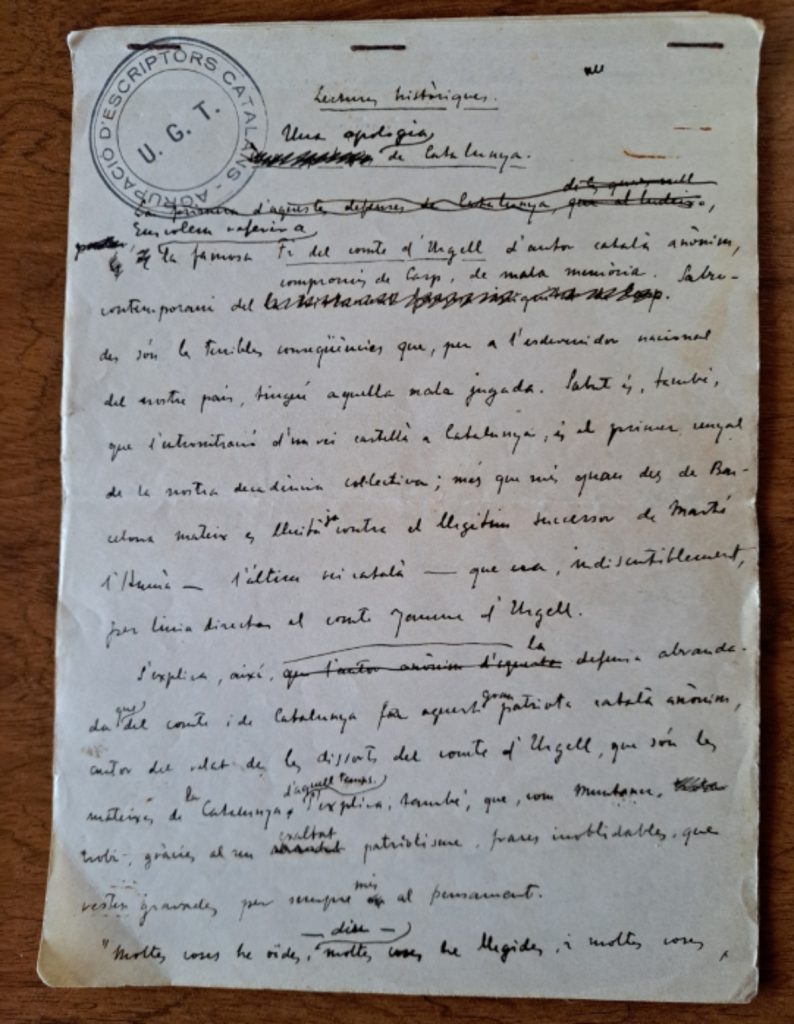 AGRUPACIÓ D'ESCRIPTORS CATALANS -
U. G. T.
Lectures històriques.
Una apologia
de Catalunya.
La primera d'aquestes defenses de Catalunya, que al ludeixo,
Ens volem referir a
la famosa Fi del comte d'Urgell d'autor català anònim,
compromís de Casp, de mala memòria. Sabu-
contemporani del
des són les terribles conseqüències que, per a l'esdevenidor nacional
del nostre país, tingué aquella mala jugada. Sabut és, també,
que l'entronització d'un rei castellà a Catalunya, és el primer senyal
de la nostra decadència col·lectiva; més que més quan des de Bar-
celona mateix es lluità ja contra el llegítim successor de Martí
l'Humà — l'últim rei català — que era, indiscutiblement,
per línia directa el comte Jaume d'Urgell.
S'explica, així, que l'autor anònim d'aquesta la defensa abranda-
da que del comte i de Catalunya fa aquest gran patriota català anònim,
autor del relat de les dissorts del comte d'Urgell, que són les
mateixes de la Catalunya d'aquell temps. S'explica, també, que, com Muntaner,
trobi, gràcies al seu exaltat patriotisme, frases inoblidables, que
resten gravades per sempre més al pensament.
"Moltes coses he oïdes, — diu — moltes coses he llegides, i moltes coses,